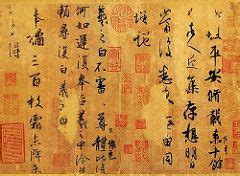 此粗平安脩載來十餘
日諸人近集存想明日
當復悉來無由同
增慨
羲之白不審尊體比復
何如遲復奉告羲之中冷無
賴尋復白羲之白
奉橘三百枚霜未降未
可多得